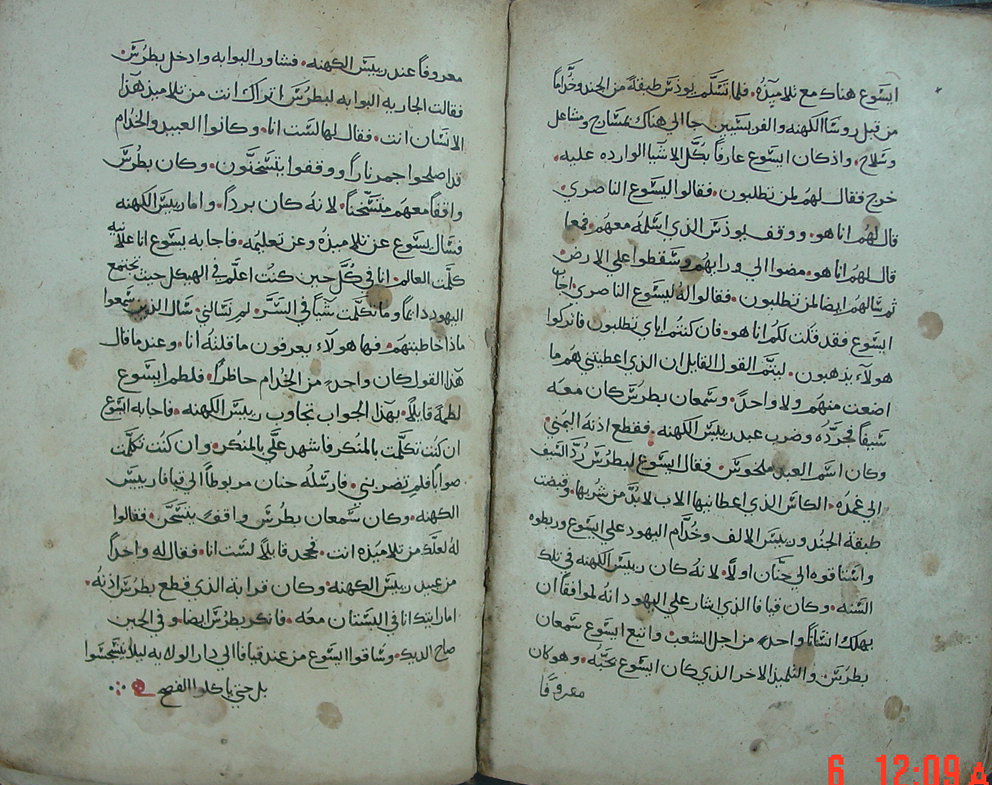 ايسوع هناك مع تلاميذه. فلما تسلم يوذس طبقة من الجند وخداما
من قبل روسا الكهنه والفريسيين جا الي هناك بمسارج ومشاعل
وسلاح. واذ كان ايسوع عارفا بكل الاشيا الوارده عليه.
خرج فقال لهم لمن تطلبون. فقالوا ليسوع الناصري.
قال لهم انا هو. ووقف يوذس الذي اسلمه معهم. فمعا
قال لهم انا هو. مضوا الي ورايهم وسقطوا علي الارض
ثم سالهم ايضا لمن تطلبون. فقالوا له ليسوع الناصري. اجاب
ايسوع فقد قلت لكم انا هو. فان كنتم اياي تطلبون فاتركوا
هولاء يذهبون. ليتم القول القايل ان الذي اعطيتني هم ما
اضعت منهم ولا واحدا. وسمعان بطرس كان معه
سيفا فجرده وضرب عبد رييس الكهنه. فقطع اذنه اليمني
وكان اسم العبد ملخوس. فقال ايسوع لبطرس رد السيف
الي غمده. الكاس الذي اعطانيها الاب لا بد من شربها. وقبضت
طبقة الجند ورييس الالف وخدام اليهود علي ايسوع وربطوه
واستاقوه الي حنان اولا. لانه كان رييس الكهنه في تلك
السنه. وكان قيافا الذي اشار علي اليهود انه لموافقا ان
يهلك انسانا واحد من اجل الشعب واتبع ايسوع سمعان
بطرس والتلميذ الاخر الذي كان ايسوع يحبه. وهو كان
معروفا
معروفا عند رييس الكهنه. فشاور البوابه وادخل بطرس
فقالت الجاريه البوابه لبطرس اتراك انت من تلاميذ هذا
الانسان انت. فقال لها لست انا. وكانوا العبيد والخدام
قد اصلحوا جمر نارا ووقفوا يتسخنون. وكان بطرس
واقفا معهم متسخنا. لانه كان بردا. واما رييس الكهنه
فسال يسوع عن تلاميذه وعن تعليمه. فاجابه يسوع انا علانيه
كلمت العالم. انا في كل حين كنت اعلم في الهيكل حيث تجتمع
اليهود دايما وما تكلمت شيا في السر. لم تسالني سال الذين سمعوا
ماذا خاطبتهم. فها هولاء يعرفون ما قلته انا. وعند ما قال
هذا القول كان واحد من الخدام حاظرا. فلطم ايسوع
لطمة قايلا. بهذا الجواب تجاوب رييس الكهنه. فاجابه ايسوع
ان كنت تكلمت بالمنكر فاشهد علي بالمنكر. وان كنت تكلمت
صوابا فلم تضربني. فارسله حنان مربوطا الي قيافا رييس
الكهنه. وكان سمعان بطرس واقف يتسخن. فقالوا
له لعلك من تلاميذه انت. فجحد قايلا لست انا. فقال له واحدا
من عبيد رييس الكهنه. وكان قرابة الذي قطع بطرس اذنه.
اما رايتك انا في البستان معه. فانكر بطرس ايضا. وفي الحين
صاح الديك. وساقوا ايسوع من عند قيافا الي دار الولايه ليلا يتنجسوا
بل حتي ياكلوا الفصح
6 12:09 A